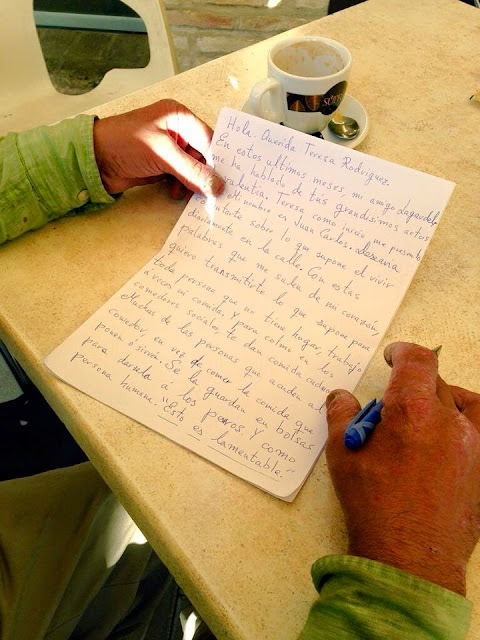 Hola. Querida Teresa Rodriguez.
En estos ultimos meses, mi amigo Lagarder
me ha hablado de tus grandisimos actos
valentia. Teresa como inicio me presento
Mi nombre es Juan Carlos. desearia
comentarte sobre lo que supone el vivir
diariamente en la calle. Con estas
palabras que me salen de mi corazón,
quiero transmitirte lo que supone para
toda persona que no tiene hogar, trabajo
á veces ni comida. Y para colmo en los
comedores sociales, te dan comida caduca
Muchas de las personas que acuden al
comedor, en vez de comer la comida que
ponen ó sirven. Se la guardan en bolsas
para darsela á los perros Y como
persona humana. "Esto es lamentable."